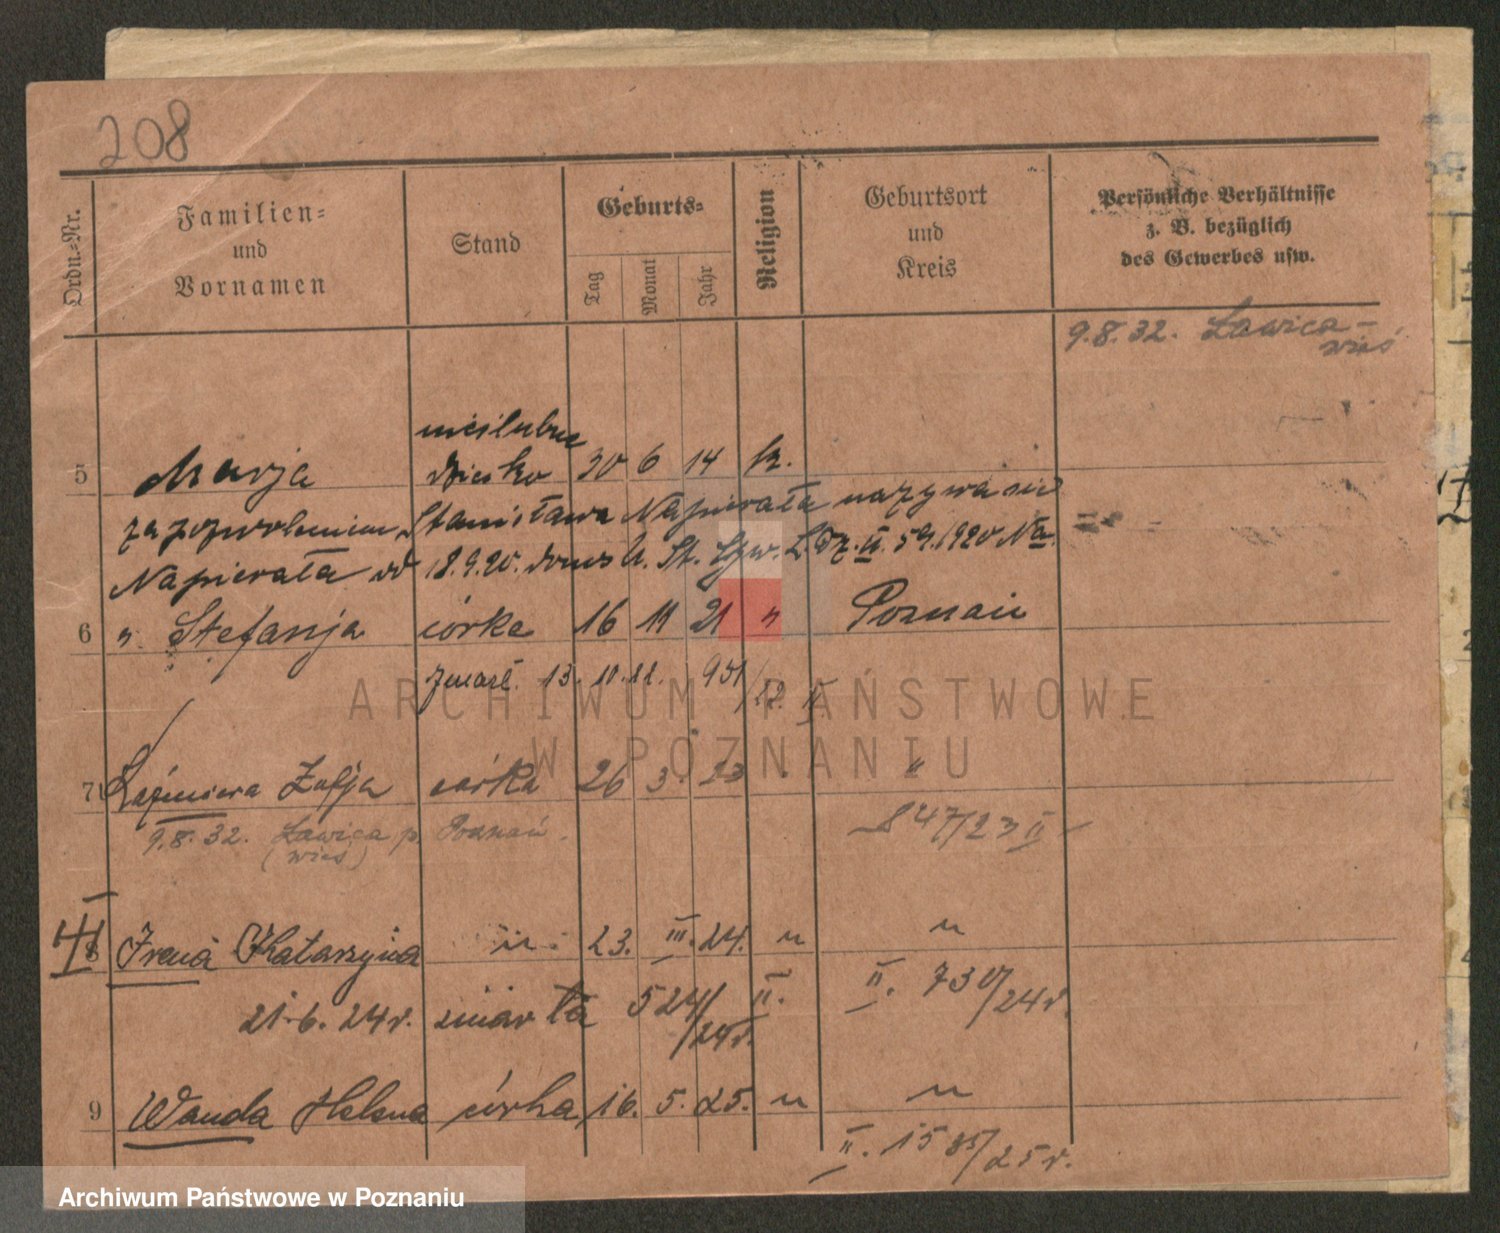 208
Ordn.-Nr.
Familien-
und
Vornamen
Stand
Geburts-
Tag
Monat
Jahr
Religion
Geburtsort
und
Kreis
Persönliche Verhältnisse
z. B. bezüglich
des Gewerbes usw.
9.8.32. Ławica-
wieś
nieślubne
5 Marja dziecko 30 6 14 k.
za pozwoleniem Stanisława Napierała nazywa się
Napierała od 18.9.20. U. St. L. Dz. II. 59.1920 Na.
6 " Stefanja córka 16 11 21 " Poznań
zmarł. 13.10.22. 951/22. II.
7 Kazimiera Zofja córka 26 3. 23 " "
9.8.32. Ławica p. Poznań. 847/23 II
(wieś)
8 Irena Katarzyna " 23. III. 24. " "
21.6.24 r. umarła 524/24 r. II. II. 730/24 r.
9 Wanda Helena córka 16. 5. 25. " "
II. 1585/25 r.
ARCHIWUM PAŃSTWOWE
W POZNANIU
Archiwum Państwowe w Poznaniu